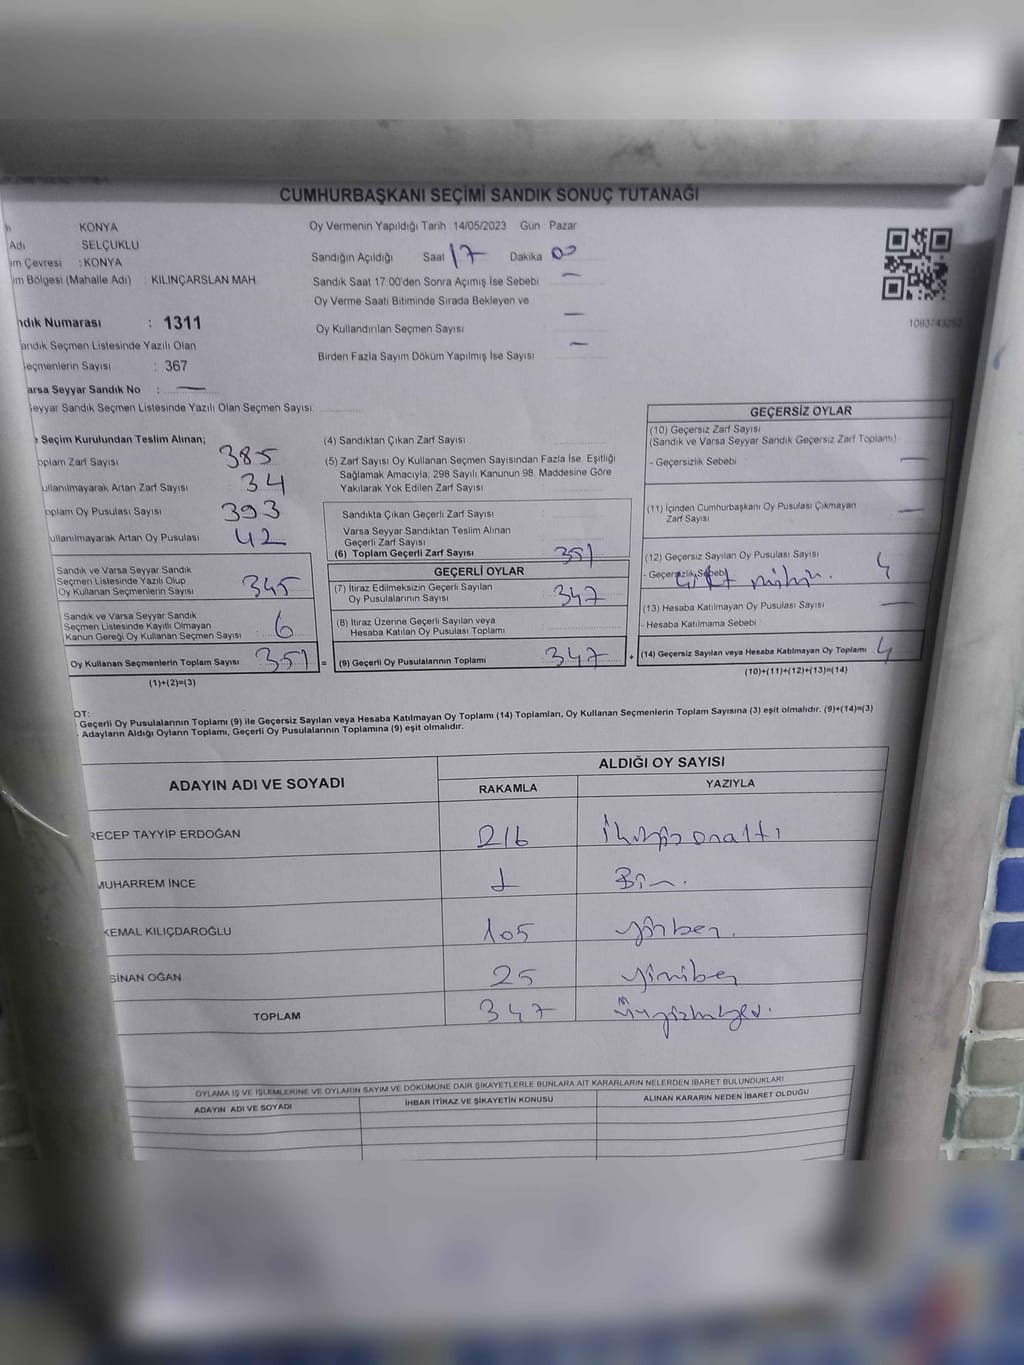 CUMHURBAŞKANI SEÇİMİ SANDIK SONUÇ TUTANAĞI
: KONYA
Adı : SELÇUKLU
im Çevresi : KONYA
im Bölgesi (Mahalle Adı) : KILINÇARSLAN MAH.
ndık Numarası : 1311
andık Seçmen Listesinde Yazılı Olan
eçmenlerin Sayısı : 367
arsa Seyyar Sandık No : —
Seyyar Sandık Seçmen Listesinde Yazılı Olan Seçmen Sayısı:
Oy Vermenin Yapıldığı Tarih : 14/05/2023 Gün : Pazar
Sandığın Açıldığı Saat 17 Dakika 00
Sandık Saat 17:00'den Sonra Açımış İse Sebebi —
Oy Verme Saati Bitiminde Sırada Bekleyen ve
Oy Kullandırılan Seçmen Sayısı —
Birden Fazla Sayım Döküm Yapılmış İse Sayısı —
1093743252
e Seçim Kurulundan Teslim Alınan;
oplam Zarf Sayısı 385
ullanılmayarak Artan Zarf Sayısı 34
oplam Oy Pusulası Sayısı 393
ullanılmayarak Artan Oy Pusulası 42
Sandık ve Varsa Seyyar Sandık
Seçmen Listesinde Yazılı Olup
Oy Kullanan Seçmenlerin Sayısı 345
Sandık ve Varsa Seyyar Sandık
Seçmen Listesinde Kayıtlı Olmayan
Kanun Gereği Oy Kullanan Seçmen Sayısı 6
Oy Kullanan Seçmenlerin Toplam Sayısı 351 =
(1)+(2)=(3)
(4) Sandıktan Çıkan Zarf Sayısı
(5) Zarf Sayısı Oy Kullanan Seçmen Sayısından Fazla İse, Eşitliği
Sağlamak Amacıyla; 298 Sayılı Kanunun 98. Maddesine Göre
Yakılarak Yok Edilen Zarf Sayısı
Sandıkta Çıkan Geçerli Zarf Sayısı
Varsa Seyyar Sandıktan Teslim Alınan
Geçerli Zarf Sayısı
(6) Toplam Geçerli Zarf Sayısı 351
GEÇERLİ OYLAR
(7) İtiraz Edilmeksizin Geçerli Sayılan
Oy Pusulalarının Sayısı 347
(8) İtiraz Üzerine Geçerli Sayılan veya
Hesaba Katılan Oy Pusulası Toplamı
(9) Geçerli Oy Pusulalarının Toplamı 347 +
GEÇERSİZ OYLAR
(10) Geçersiz Zarf Sayısı
(Sandık ve Varsa Seyyar Sandık Geçersiz Zarf Toplamı)
- Geçersizlik Sebebi —
(11) İçinden Cumhurbaşkanı Oy Pusulası Çıkmayan
Zarf Sayısı —
(12) Geçersiz Sayılan Oy Pusulası Sayısı 4
- Geçersizlik Sebebi çift mühür.
(13) Hesaba Katılmayan Oy Pusulası Sayısı —
- Hesaba Katılmama Sebebi
(14) Geçersiz Sayılan veya Hesaba Katılmayan Oy Toplamı 4
(10)+(11)+(12)+(13)=(14)
OT:
Geçerli Oy Pusulalarının Toplamı (9) ile Geçersiz Sayılan veya Hesaba Katılmayan Oy Toplamı (14) Toplamları, Oy Kullanan Seçmenlerin Toplam Sayısına (3) eşit olmalıdır. (9)+(14)=(3)
- Adayların Aldığı Oyların Toplamı, Geçerli Oy Pusulalarının Toplamına (9) eşit olmalıdır.
ADAYIN ADI VE SOYADI ALDIĞI OY SAYISI
RAKAMLA YAZIYLA
RECEP TAYYİP ERDOĞAN 216 İkiyüzonaltı
MUHARREM İNCE 1 Bir.
KEMAL KILIÇDAROĞLU 105 yüzbeş.
SİNAN OĞAN 25 yirmibeş
TOPLAM 347
OYLAMA İŞ VE İŞLEMLERİNE VE OYLARIN SAYIM VE DÖKÜMÜNE DAİR ŞİKAYETLERLE BUNLARA AİT KARARLARIN NELERDEN İBARET BULUNDUKLARI
ADAYIN ADI VE SOYADI İHBAR İTİRAZ VE ŞİKAYETİN KONUSU ALINAN KARARIN NEDEN İBARET OLDUĞU